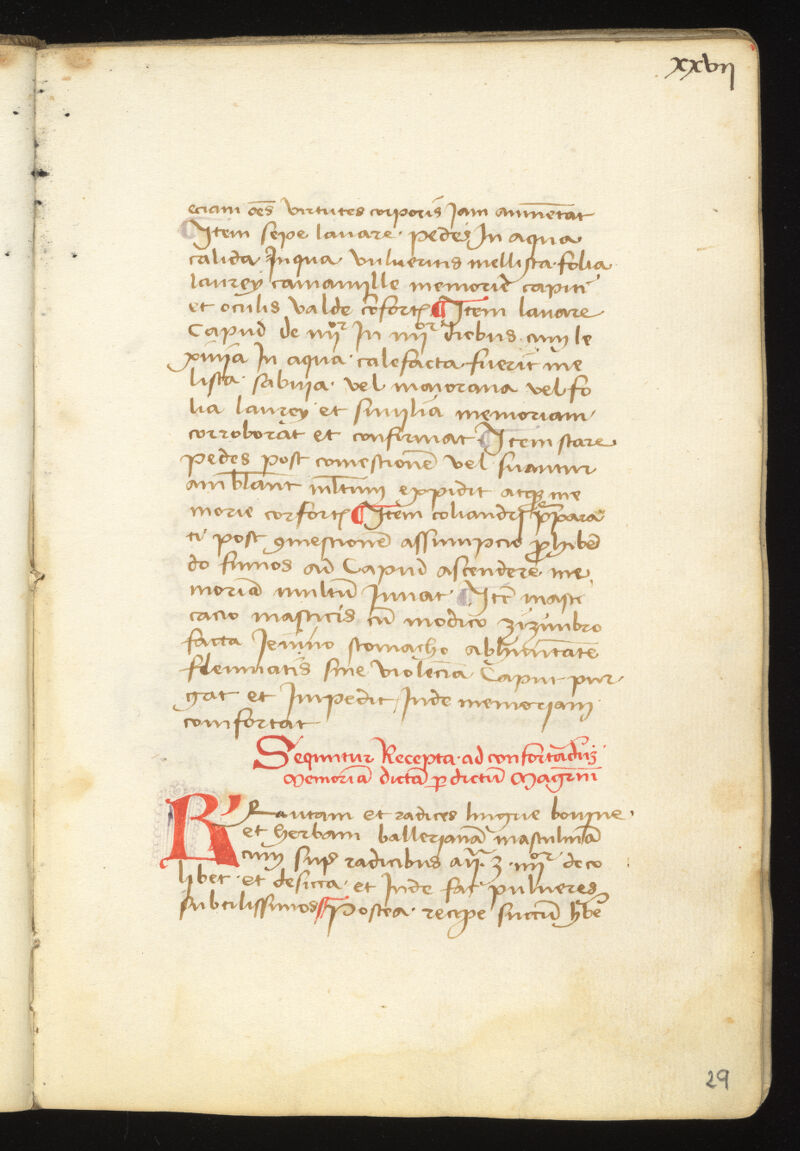 xxvii
eciam oēs virtutes corporis Jam aumētat
Item sepe lavare pedes In aqua
calida In qua vulueritis mellissa folia
laurey camamille memorie capiti
et oculis valde cōfort Item lavare
Capud de iiii or In iiii or diebus cum le
xiuia In aqua calefacta fuerit me
lissa salvia vel maiorana vel fo
lia laurey et similia memoriam
corroborat et confirmat Item stare
pedes post comestionē vel suauiter
ambulant multum expidit atque me
morie confort Item coliandri p̄para
ti post 9mestionē assumpcio prohibē
do fumos ad Capud ascendere me
moriā multū Iuvat Itē masti
cacio masticis cū modico zizimbro
facta Jeiuno stomacho ab humitatē
fleumatis sine violēcia Caput pur
gat et Impedit Inde memoriam
comfortat
Sequntur Recepta ad confortādum
Memoriā dictā per dictū Magrm
R Rautam et radices lingue bovine
et herbam ballerianā masculinā
cum suis radicibus aii ʒ iiii or de co
libet et desicca et Inde fac pulveres
subtilissimos Postea recipe succū hbe
29